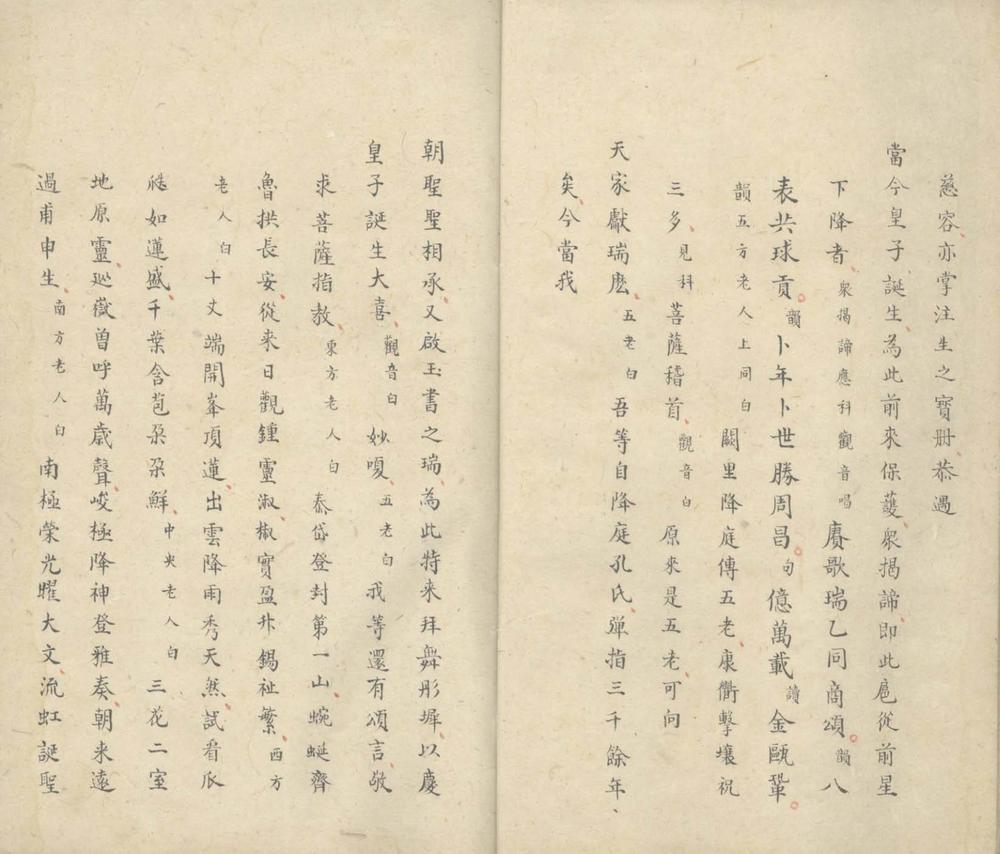 慈容亦掌注生之寶冊恭遇
當今皇子誕生為此前來保護衆揭諦即此扈從前星
下降者衆揭諦應科觀音唱賡歌瑞乙同商頌韻八
表共球貢韻卜年卜世勝周昌句億萬載讀金甌鞏
韻五方老人上同白闕里降庭傳五老康衢擊壤祝
三多見科菩薩稽首觀音白原來是五老可向
天家獻瑞麽五老白吾等自降庭孔氏彈指三千餘年
矣今當我
朝聖聖相承又啟玉書之瑞為此特来拜舞彤墀以慶
皇子誕生大喜觀音白妙嗄五老白我等還有頌言敬
求菩薩指教東方老人白泰岱登封第一山蜿蜒齊
魯拱長安從来日觀鍾靈淑椒實盈升錫祉繁西方
老人白十丈端開峯頂蓮出雲降雨秀天然試看瓜
瓞如蓮盛千葉含苞朶朶鮮中央老人白三花二室
地原靈廵嶽曽呼萬歲聲峻極降神登雅奏朝来遠
過甫申生南方老人白南極榮光曜大文流虹誕聖